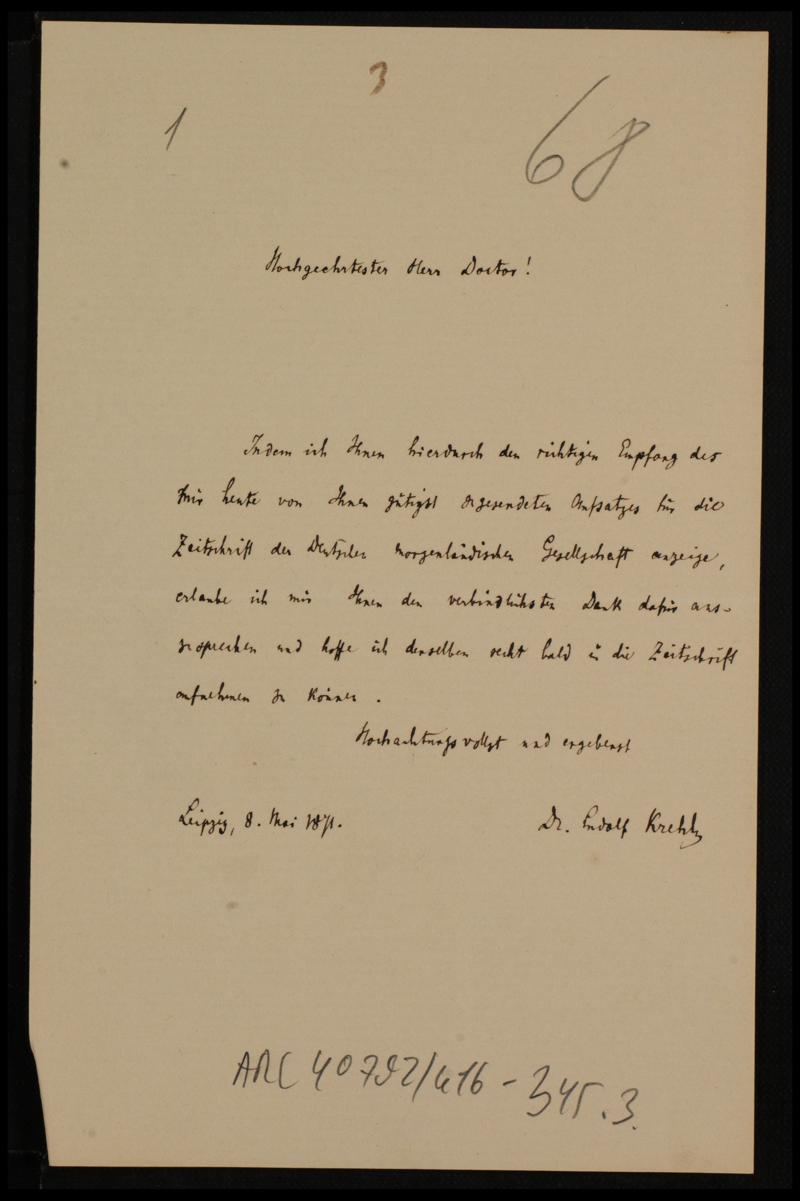 3
1
68
Hochgeehrtester Herr Doctor!
Indem ich Ihnen hierdurch den richtigen Empfang des
mir heute von Ihnen gütigst zugesendeten Aufsatzes für die
Zeitschrift der Deutschen morgenländischen Gesellschaft anzeige,
erlaube ich mir Ihnen den verbindlichsten Dank dafür aus-
zusprechen und hoffe ich denselben recht bald in die Zeitschrift
aufnehmen zu können.
Hochachtungsvollst und ergebenst
Leipzig, 8. Mai 1871.
Dr. Ludolf Krehl
ARC 40792/416-345.3.